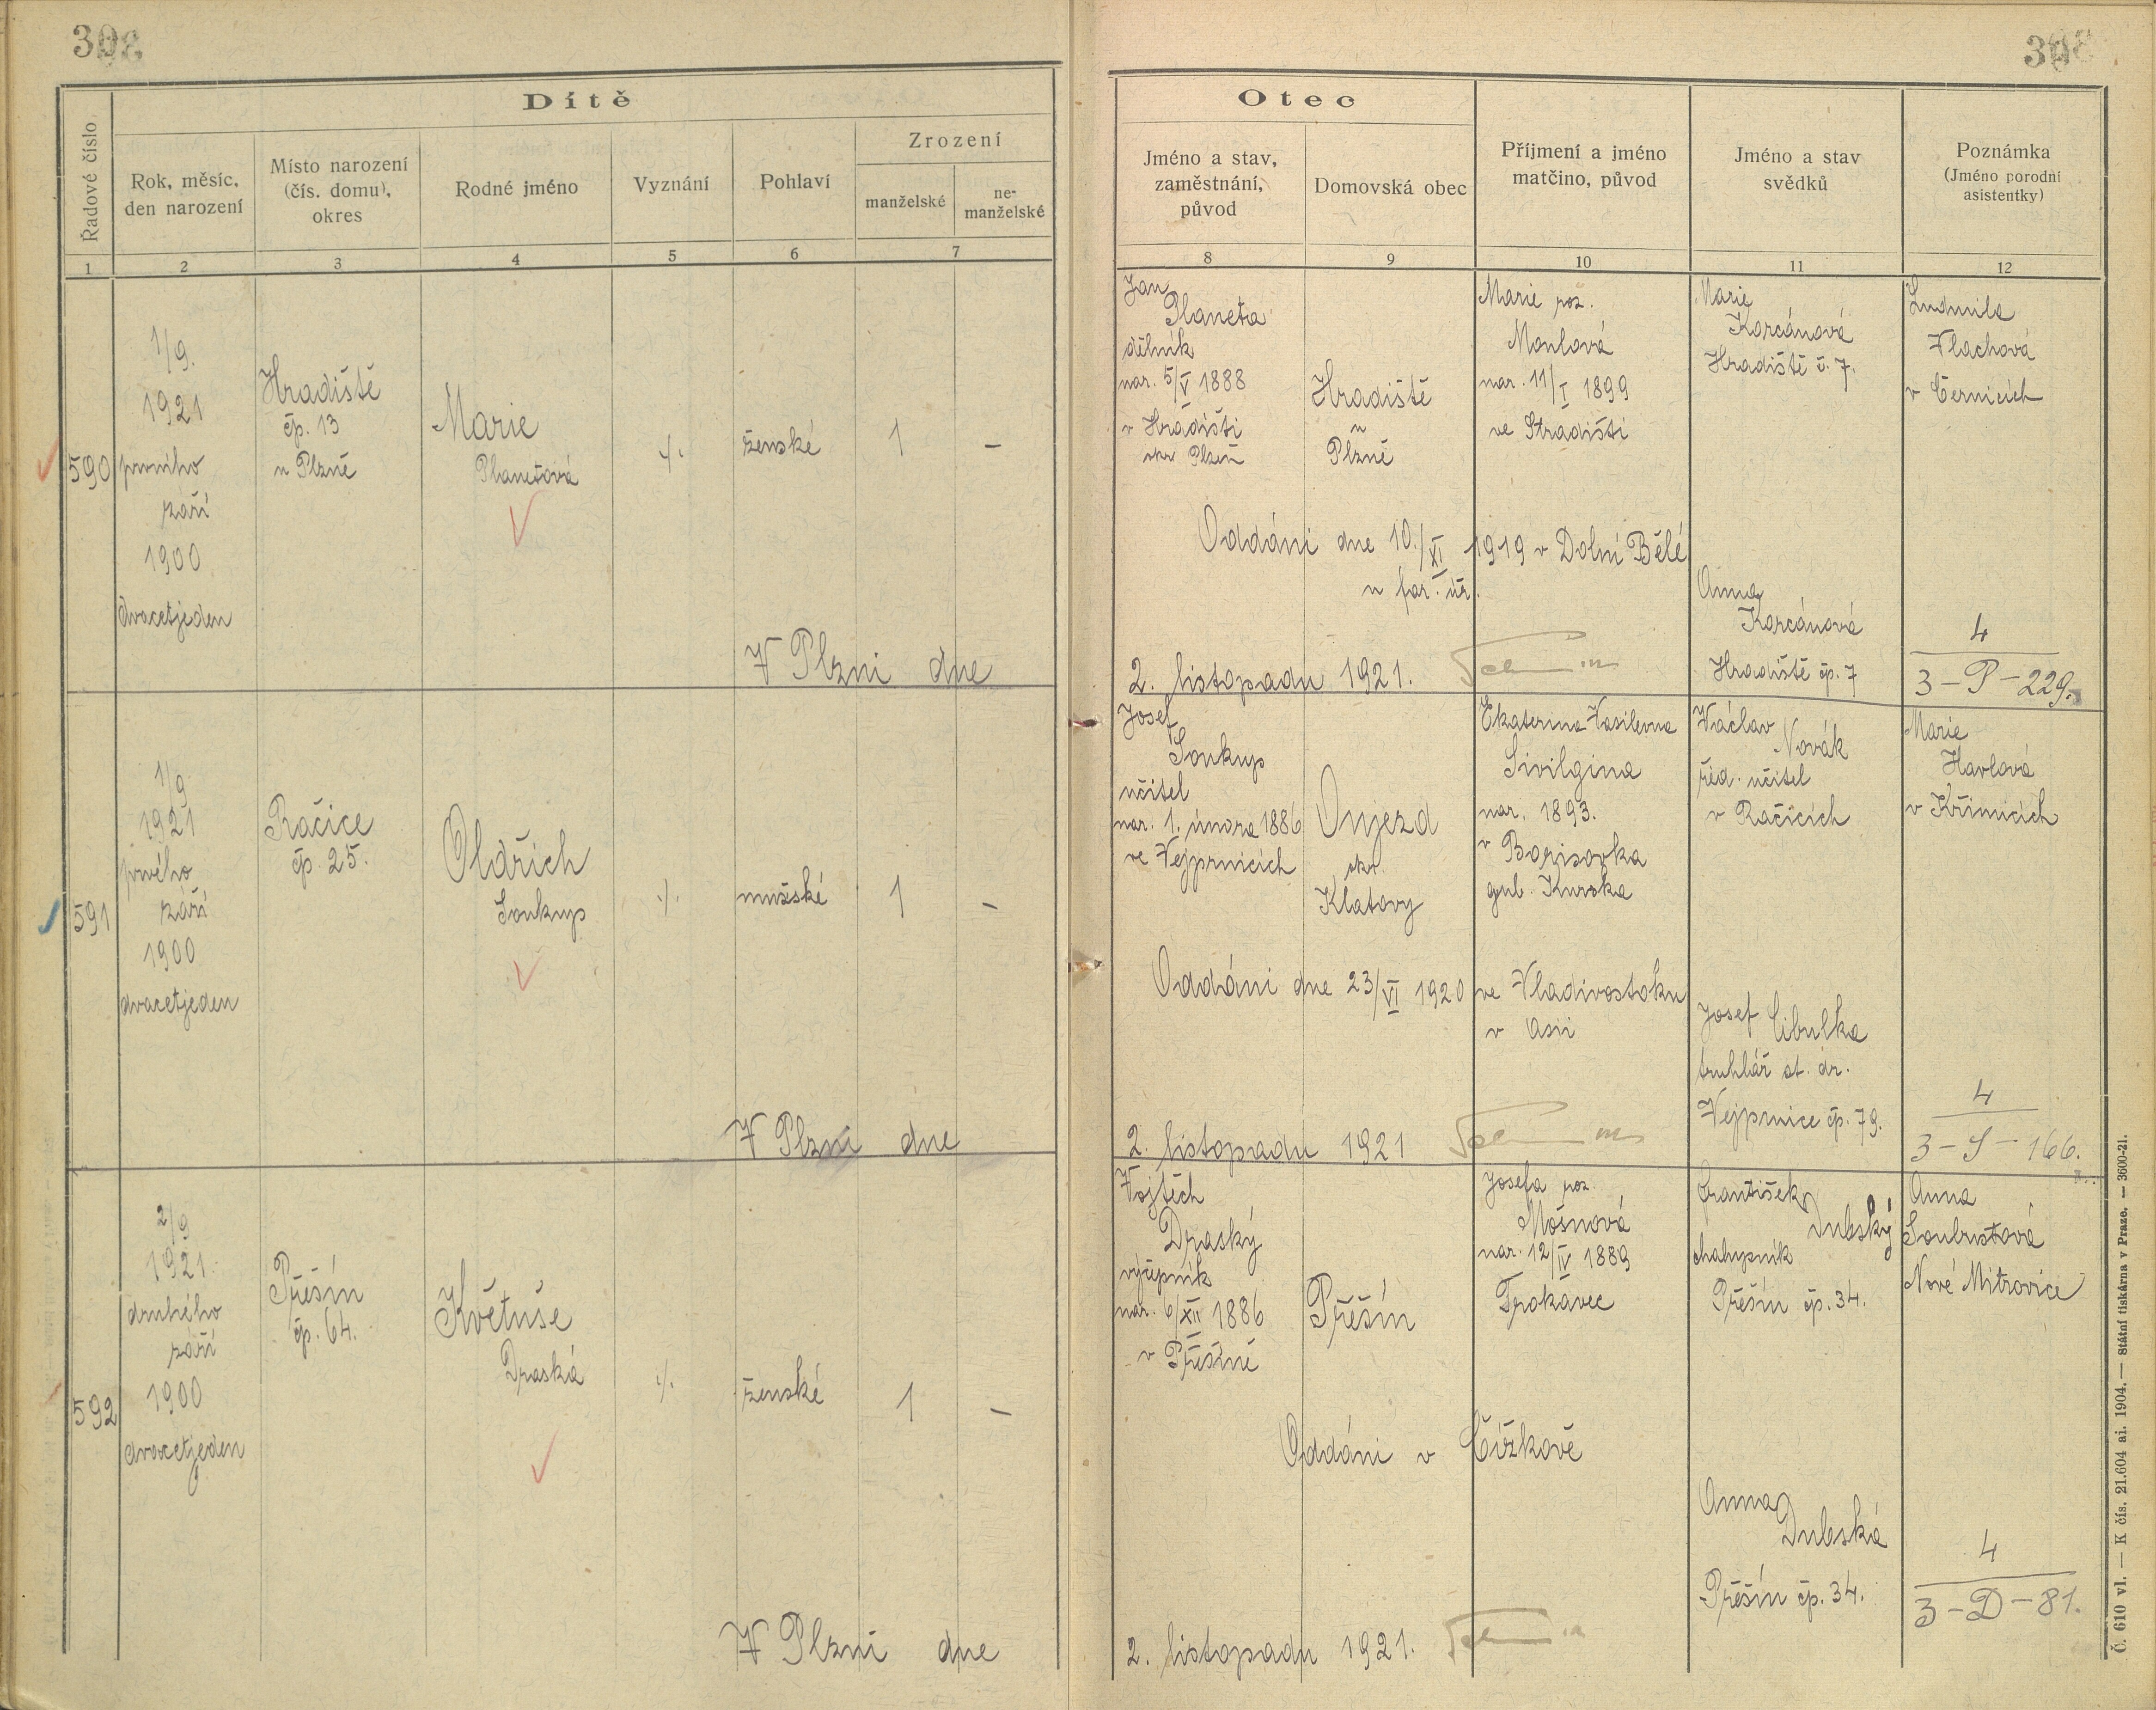 Dítě
Řadové číslo
Rok, měsíc,
den narození
Místo narození
(čís. domu),
okres
Rodné jméno
Vyznání
Pohlaví
Zrození
manželské
ne-
manželské
1
2
3
4
5
6
7
590
1/9.
1921
prvního
září
1900
dvacetjeden
Hradiště
čp. 13
u Plzně
Marie
Planetová
./.
ženské
1
–
V Plzni dne
591
1/9
1921
prvého
září
1900
dvacetjeden
Račice
čp. 25.
Oldřich
Soukup
./.
mužské
1
–
V Plzni dne
592
2/9
1921.
druhého
září
1900
dvacetjeden
Přešín
čp. 64.
Květuše
Draská
./.
ženské
1
–
V Plzni dne
Otec
Jméno a stav,
zaměstnání,
původ
Domovská obec
Příjmení a jméno
matčino, původ
Jméno a stav
svědků
Poznámka
(Jméno porodní
asistentky)
8
9
10
11
12
Jan
Planeta
dělník
nar. 5/V 1888
v Hradišti
okr Plzeň
Hradiště
u
Plzně
Marie roz.
nar. 11/I 1899
Marie
Korcánová
Hradiště č. 7.
Ludmila
Vlachová
v Černicích
Oddáni dne 10./XI 1919 v Dolní Bělé
u far. úř.
Anna
Korcánová
Hradiště čp. 7
4
3 – P – 229.
2. listopadu 1921.
Josef
Soukup
učitel
nar. 1. února 1886
ve Vejprnicích
Oujezd
okr.
Klatovy
Ekaterina Vasilevna
Sivilgina
nar. 1893.
v Borisovka
gub. Kurska
Václav
Novák
říd. učitel
v Račicích
Marie
Havlová
v Křimicích
Oddáni dne 23/VI 1920 ve Vladivostoku
v Asii
Josef Cibulka
truhlář st. dr.
Vejprnice čp. 79.
4
3 – S – 166.
2. listopadu 1921
Vojtěch
Draský
výčepník
nar. 6/XII 1886
v Přešíně
Přešín
Josefa roz.
Mošnová
nar. 12/IV 1889
Trokavec
František
Dubský
chalupník
Přešín čp. 34.
Anna
Soubustová
Nové Mitrovice
Oddáni v Čížkově
Anna
Dubská
Přešín čp. 34.
4
3 – D – 81.
2. listopadu 1921.
Č. 610 vl. — K čís. 21.604 ai. 1904. — Státní tiskárna v Praze. — 3600-21.